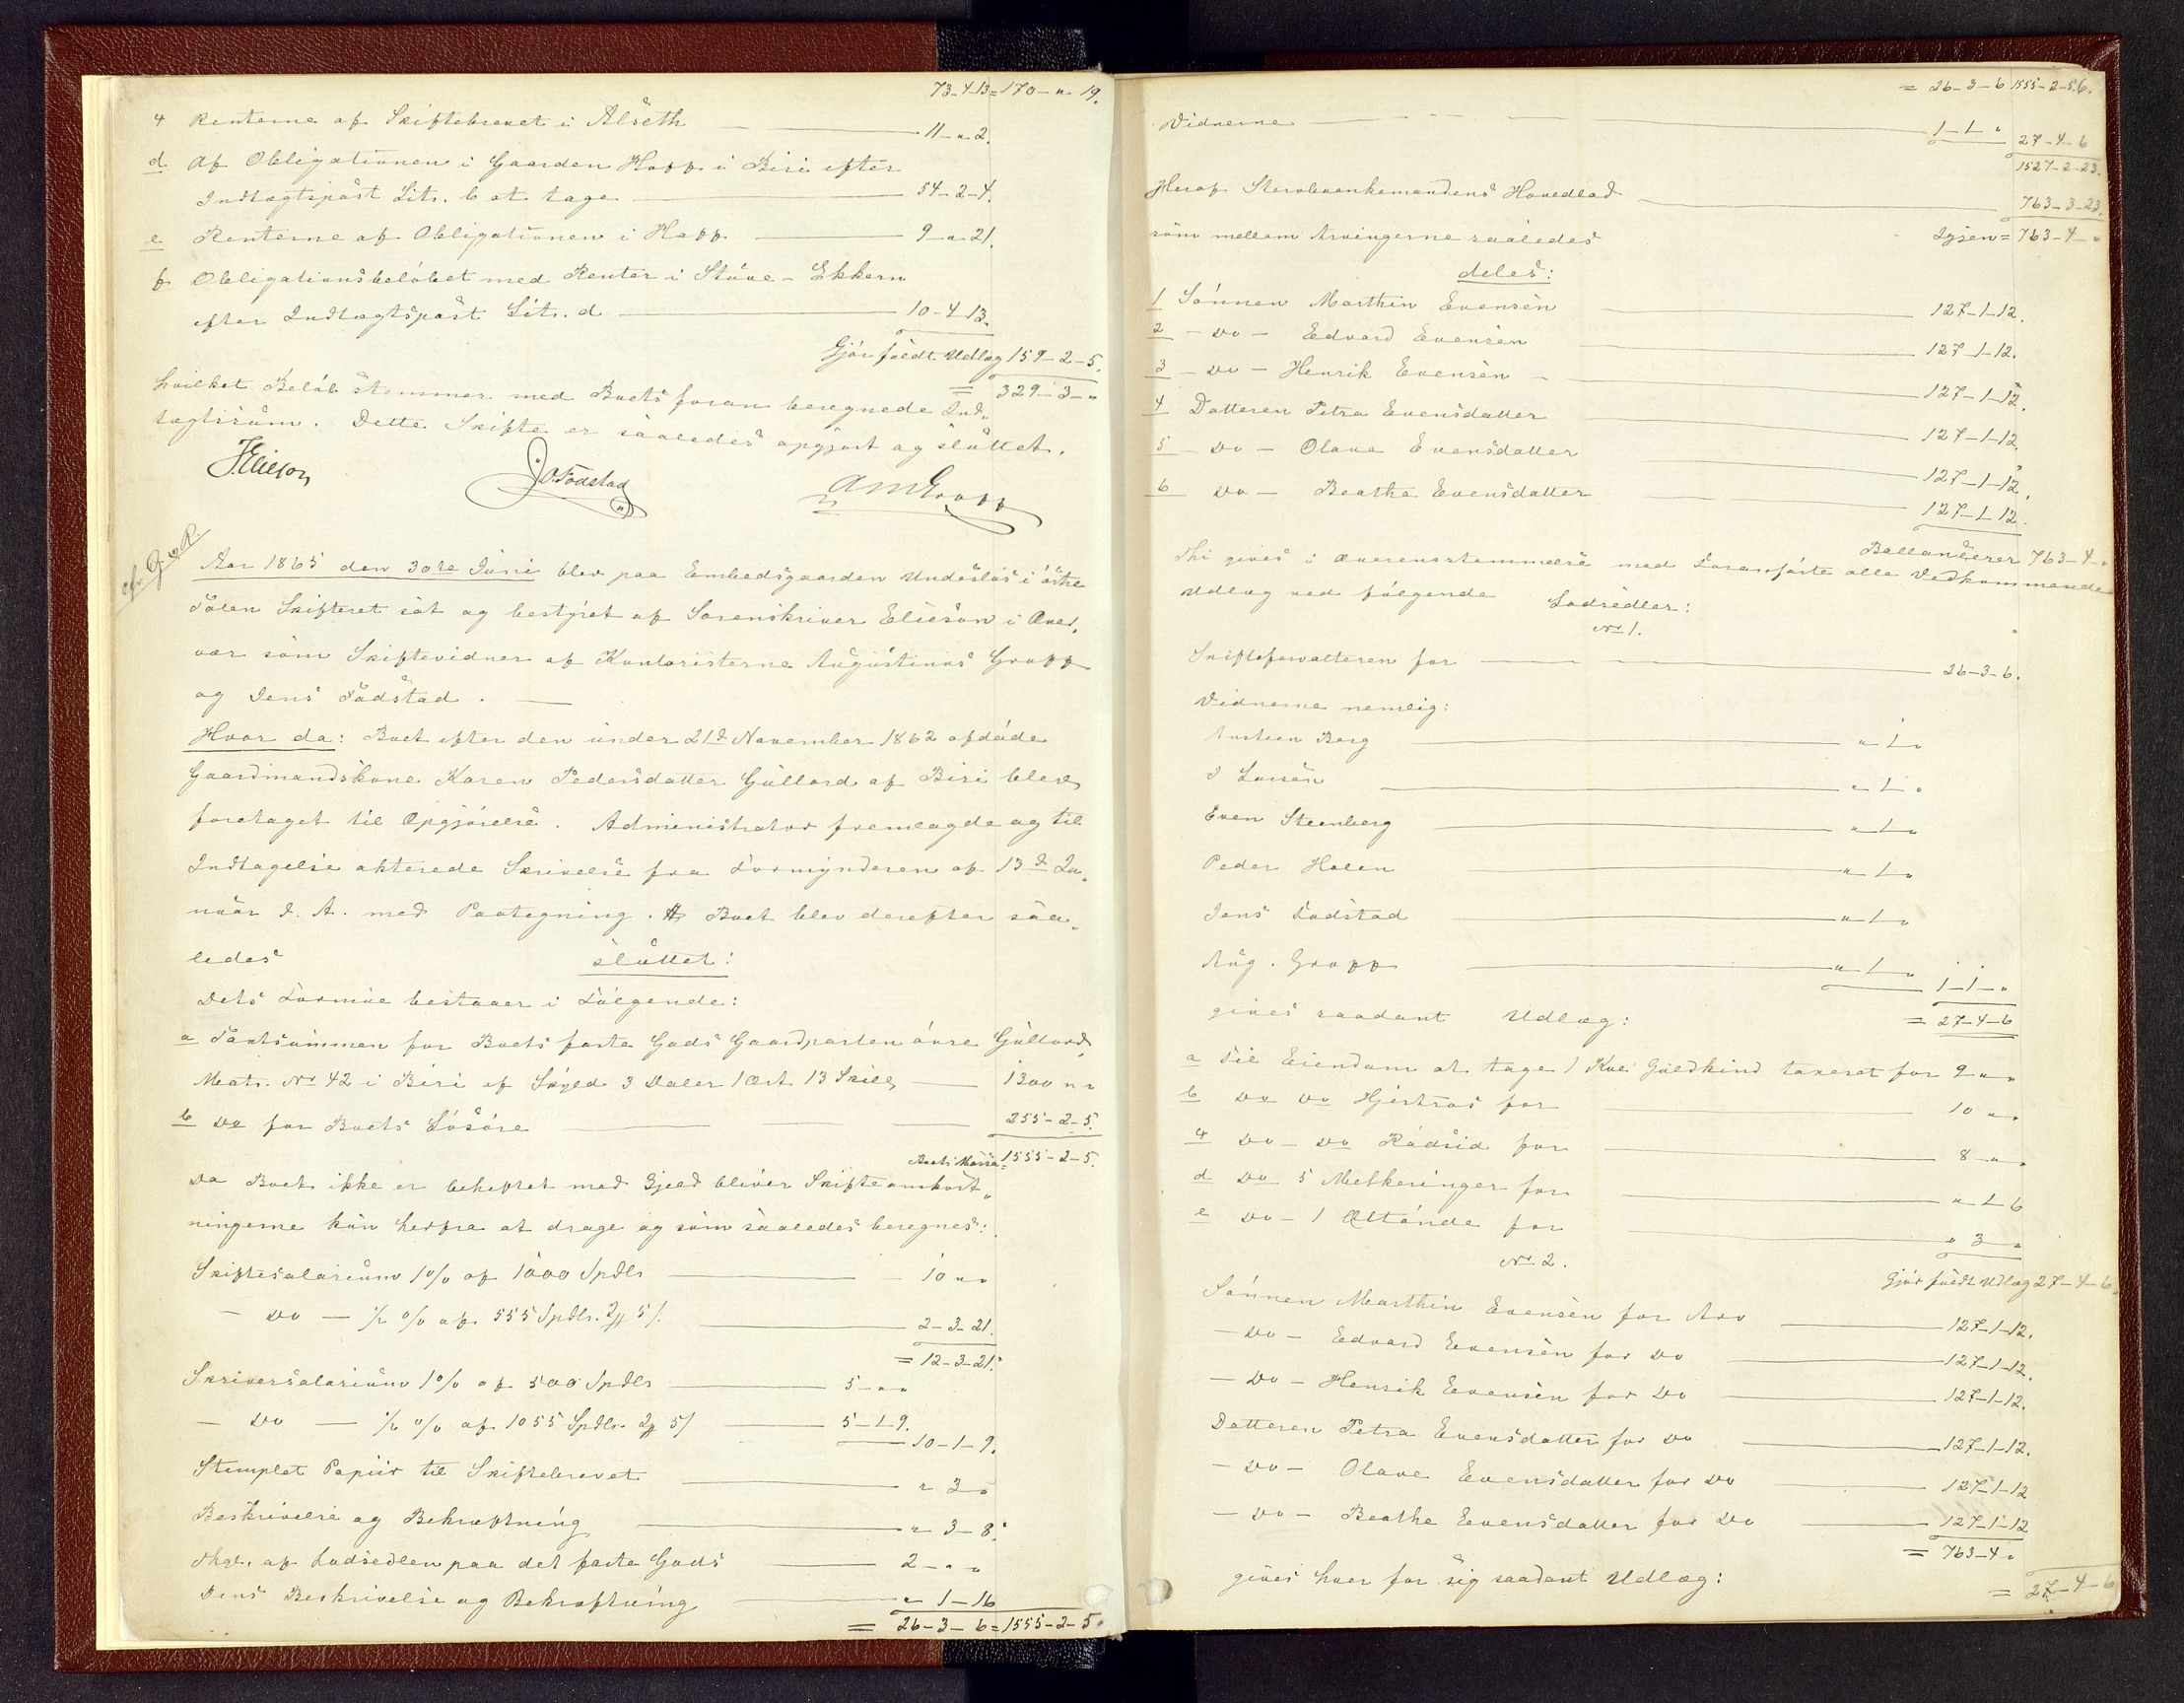 73-4-13 = 170 - " - 19.
4 Renterne af Skiftebrevet i Alseth — 11 - " - 2.
d Af Obligationen i Gaarden Hopp i Biri efter
Indtægtspost Litr. b at tage — 54-2-4.
e Renterne af Obligationen i Hopp — 9 - " - 21.
f Obligationsbeløbet med Renter i Støve-Ekkern
efter Indtægtspost Litr. d — 10-4-13.
Gjør fuldt Udlæg 159-2-5.
= 329-3-"
hvilket Beløb stemmer med Boets foran beregnede Ind-
tægtssum. Dette Skifte er saaledes opgjort og sluttet.
JElieson JO.Fodstad AMGropp
Aar 1865 den 30te Juni blev paa Embedsgaarden Undeslös i östre
Toten Skifteret sat og bestyret af Sorenskriver Elieson i Over-
vær som Skiftevidner af Kontoristerne Augustinus Gropp
og Jens Fodstad. —
Hvor da: Boet efter den under 21d November 1862 afdøde
Gaardmandskone Karen Pedersdatter Gullord af Biri blev
foretaget til Opgjørelse. Administrator fremlagde og til
Indtagelse akterede Skrivelse fra Formynderen af 13d Ja-
nuar d. A. med Paategning. Boet blev derefter saa-
ledes sluttet:
Dets Formue bestaaer i Følgende:
a Taxtsummen for Boets faste Gods Gaardparten øvre Gullord,
Matr. No 42 i Biri af Skyld 3 Daler 1 Ort 13 Skill, — 1300 " "
b Do for Boets Løsøre — 255-2-5.
Boets Masse = 1555-2-5.
Da Boet ikke er beheftet med Gjeld bliver Skifteomkost-
ningerne kun herfra at drage og som saaledes beregnes:
Skiftesalarium 1 % af 1000 Spdlr — 10 " "
— Do — ½ % af 555 Spdlr. 2 5 — 2-3-21.
= 12-3-21.
Skriversalarium 1 % af 500 Spdlr — 5 - " "
— Do — ½ % af 1055 Spdlr. 2 5 — 5-1-9.
10-1-9.
Stemplet Papiir til Skiftebrevet — " 3 "
Beskrivelse og Bekræftning — " 3-8.
Thgl. af Lodsedlen paa det faste Gods — 2 - " "
Dens Beskrivelse og Bekræftning — " 1-16
= 26-3-6 = 1555-2-5.
= 26-3-6 1555-2-5.
Vidnerne — 1-1 " 27-4-6
1527-2-23.
Heraf Stervboenkemandens Hovedlod — 763-3-23.
som mellem Arvingerne saaledes Igjen = 763-4-"
deles:
1 Sønnen Marthin Evensen — 127-1-12.
2 — Do — Edvard Evensen — 127-1-12.
3 — Do — Henrik Evensen — 127-1-12.
4 Datteren Petra Evensdatter — 127-1-12.
5 — Do — Olave Evensdatter — 127-1-12.
6 Do — Beathe Evensdatter — 127-1-12.
Ballancerer 763-4-"
Thi gives i Overensstemmelse med Foranførte alle Vedkommende
Udlæg ved følgende Lodsedler:
No 1.
Skifteforvalteren for — 26-3-6.
Vidnerne nemlig:
Austeen Berg — " 1 "
J Larsen — " 1 "
Even Steenberg — " 1 "
Peder Holen — " 1 "
Jens Fodstad — " 1 "
Aug. Gropp — " 1 " 1-1-"
gives saadant Udlæg: = 27-4-6
a Til Eiendom at tage 1 Koe Guldkind taxeret for 9 " "
b Do Do Hjertros for — 10 " "
c Do — Do Rødsid for — 8 - " "
d Do 5 Melkeringer for — " 1 6
e Do — 1 Øltønde for — " 3 "
No 2. Gjør fuldt Udlæg 27-4-6.
Sønnen Marthin Evensen for Arv — 127-1-12.
— Do — Edvard Evensen for Do — 127-1-12.
— Do — Henrik Evensen for Do — 127-1-12.
Datteren Petra Evensdatter for Do — 127-1-12.
— Do — Olave Evensdatter for Do — 127-1-12
— Do — Beathe Evensdatter for Do — 127-1-12
= 763-4 "
gives hver for sig saadant Udlæg: = 27-4-6